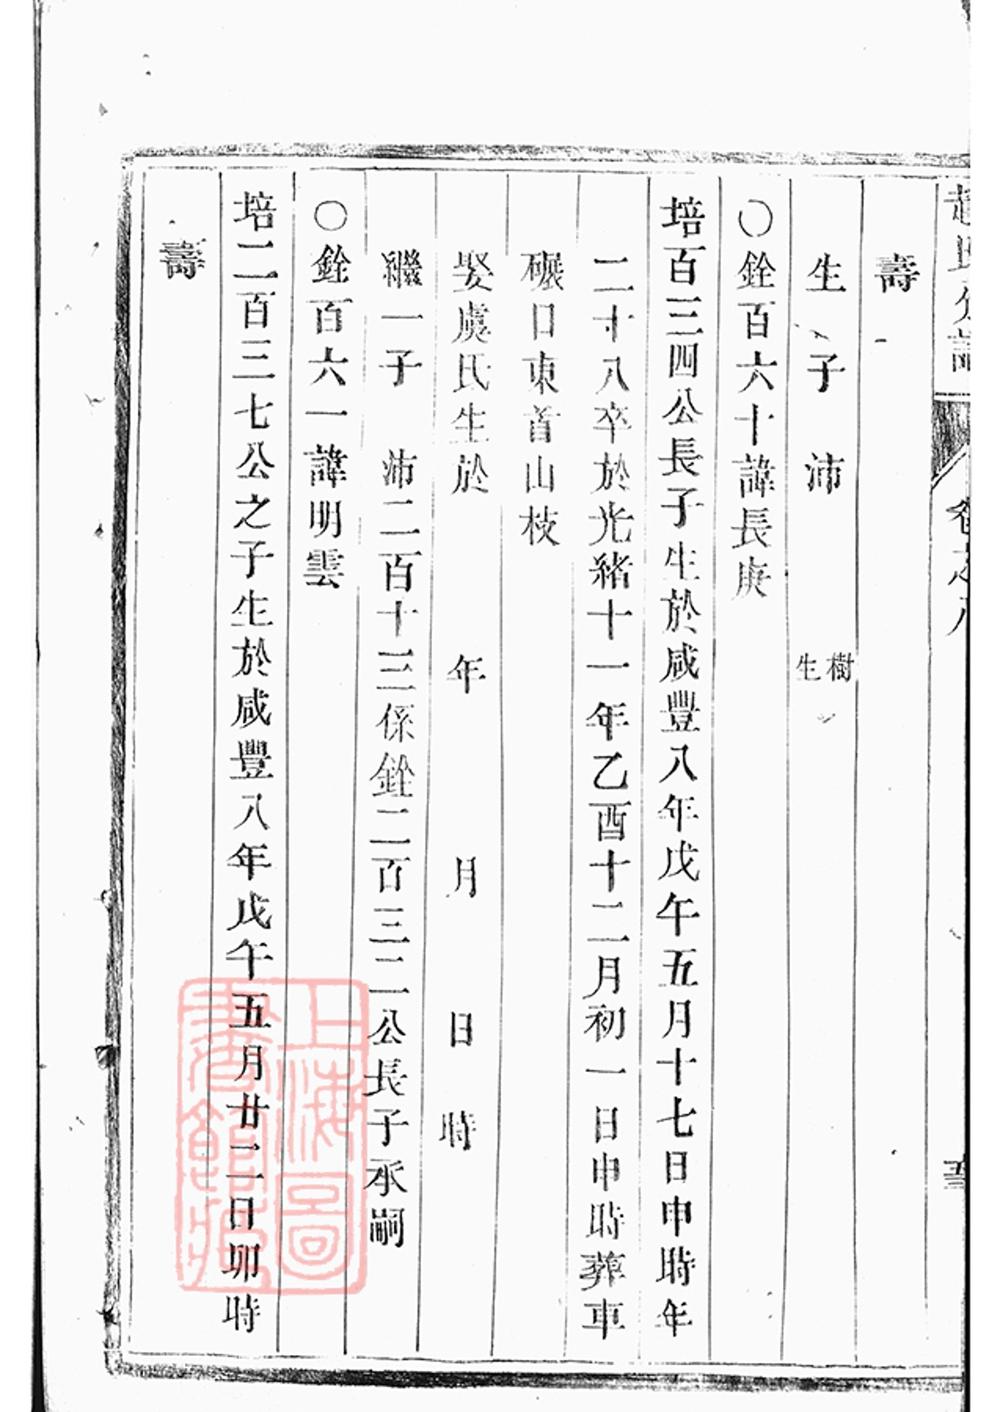 趙氏分譜
卷之八
壽
生子沛
樹生
○銓百六十諱長庚
培百三四公長子生於咸豐八年戊午五月十七日申時年
二十八卒於光緒十一年乙酉十二月初一日申時葬車
碾口東首山枝
娶虞氏生於 年 月 日時
繼一子 沛二百十三係銓二百三二公長子承嗣
○銓百六一諱明雲
培二百三七公之子生於咸豐八年戊午五月廿二日卯時
壽
上海圖書館藏